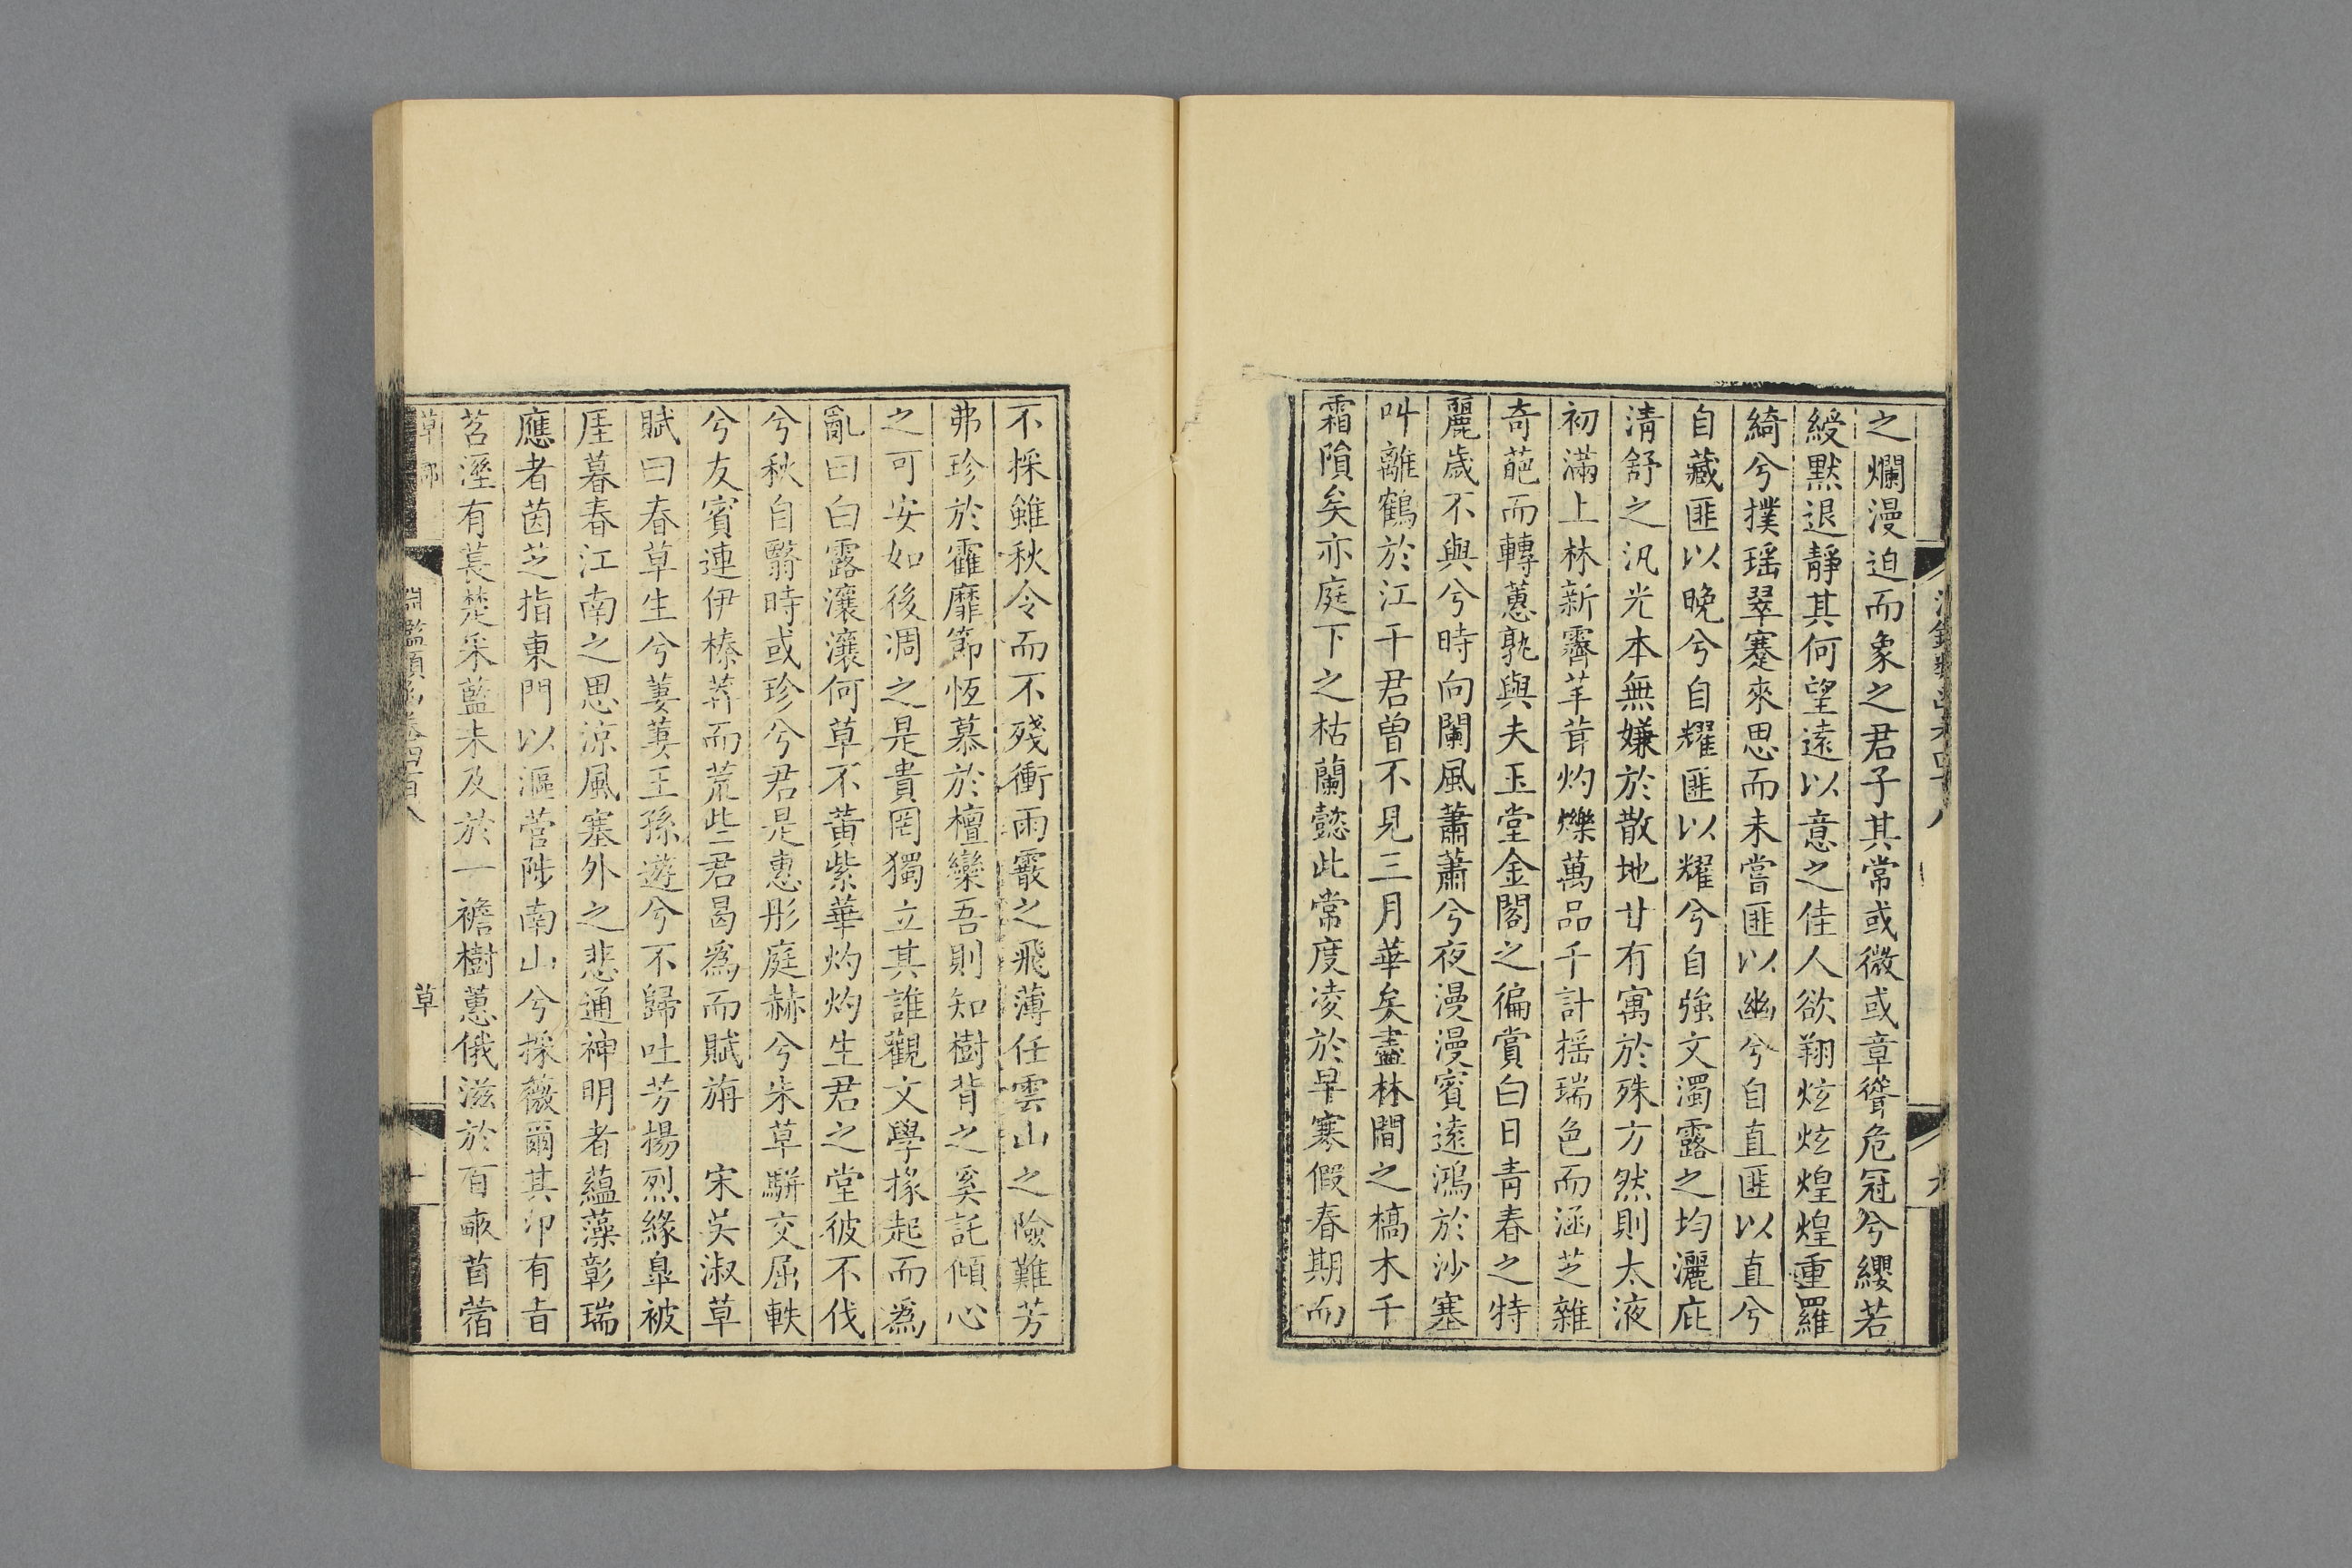 之爛漫迫而象之君子其常或微或章聳危冠兮纓若
綬黙退靜其何望遠以意之佳人欲翔炫炫煌煌重羅
綺兮撲瑶翠蹇來思而未嘗匪以幽兮自直匪以直兮
自藏匪以晚兮自耀匪以耀兮自強文濁露之均灑庇
清舒之汎光本無嫌於散地廿有寓於殊方然則太液
初滿上林新霽芊茸灼爍萬品千計揺瑞色而涵芝雜
奇葩而轉蕙孰與夫玉堂金閣之徧賞白日青春之特
麗歳不與兮時向闌風蕭蕭兮夜漫漫賓遠鴻於沙塞
叫離鶴於江干君曽不見三月華矣盡林間之槁木千
霜隕矣亦庭下之枯蘭懿此常度凌於早寒假春期而
不採雖秋令而不殘衝雨霰之飛薄任雲山之險難芳
弗珍於靃靡節恆慕於檀欒吾則知樹背之奚託傾心
之可安如後凋之是貴罔獨立其誰觀文學掾起而爲
亂曰白露瀼瀼何草不黃紫華灼灼生君之堂彼不伐
兮秋自翳時或珍兮君是惠彤庭赫兮朱草駢交屈軼
兮友賓連伊榛莽而荒些君曷爲而賦旃　宋吴淑草
賦曰春草生兮萋萋王孫遊兮不歸吐芳揚烈緣臯被
厓暮春江南之思涼風塞外之悲通神明者蘊藻彰瑞
應者茵芝指東門以漚菅陟南山兮採薇爾其卭有旨
苕溼有萇楚采藍未及於一襜樹蕙俄滋於百畝苜蓿
草部
淵鑑類函卷四百八
草